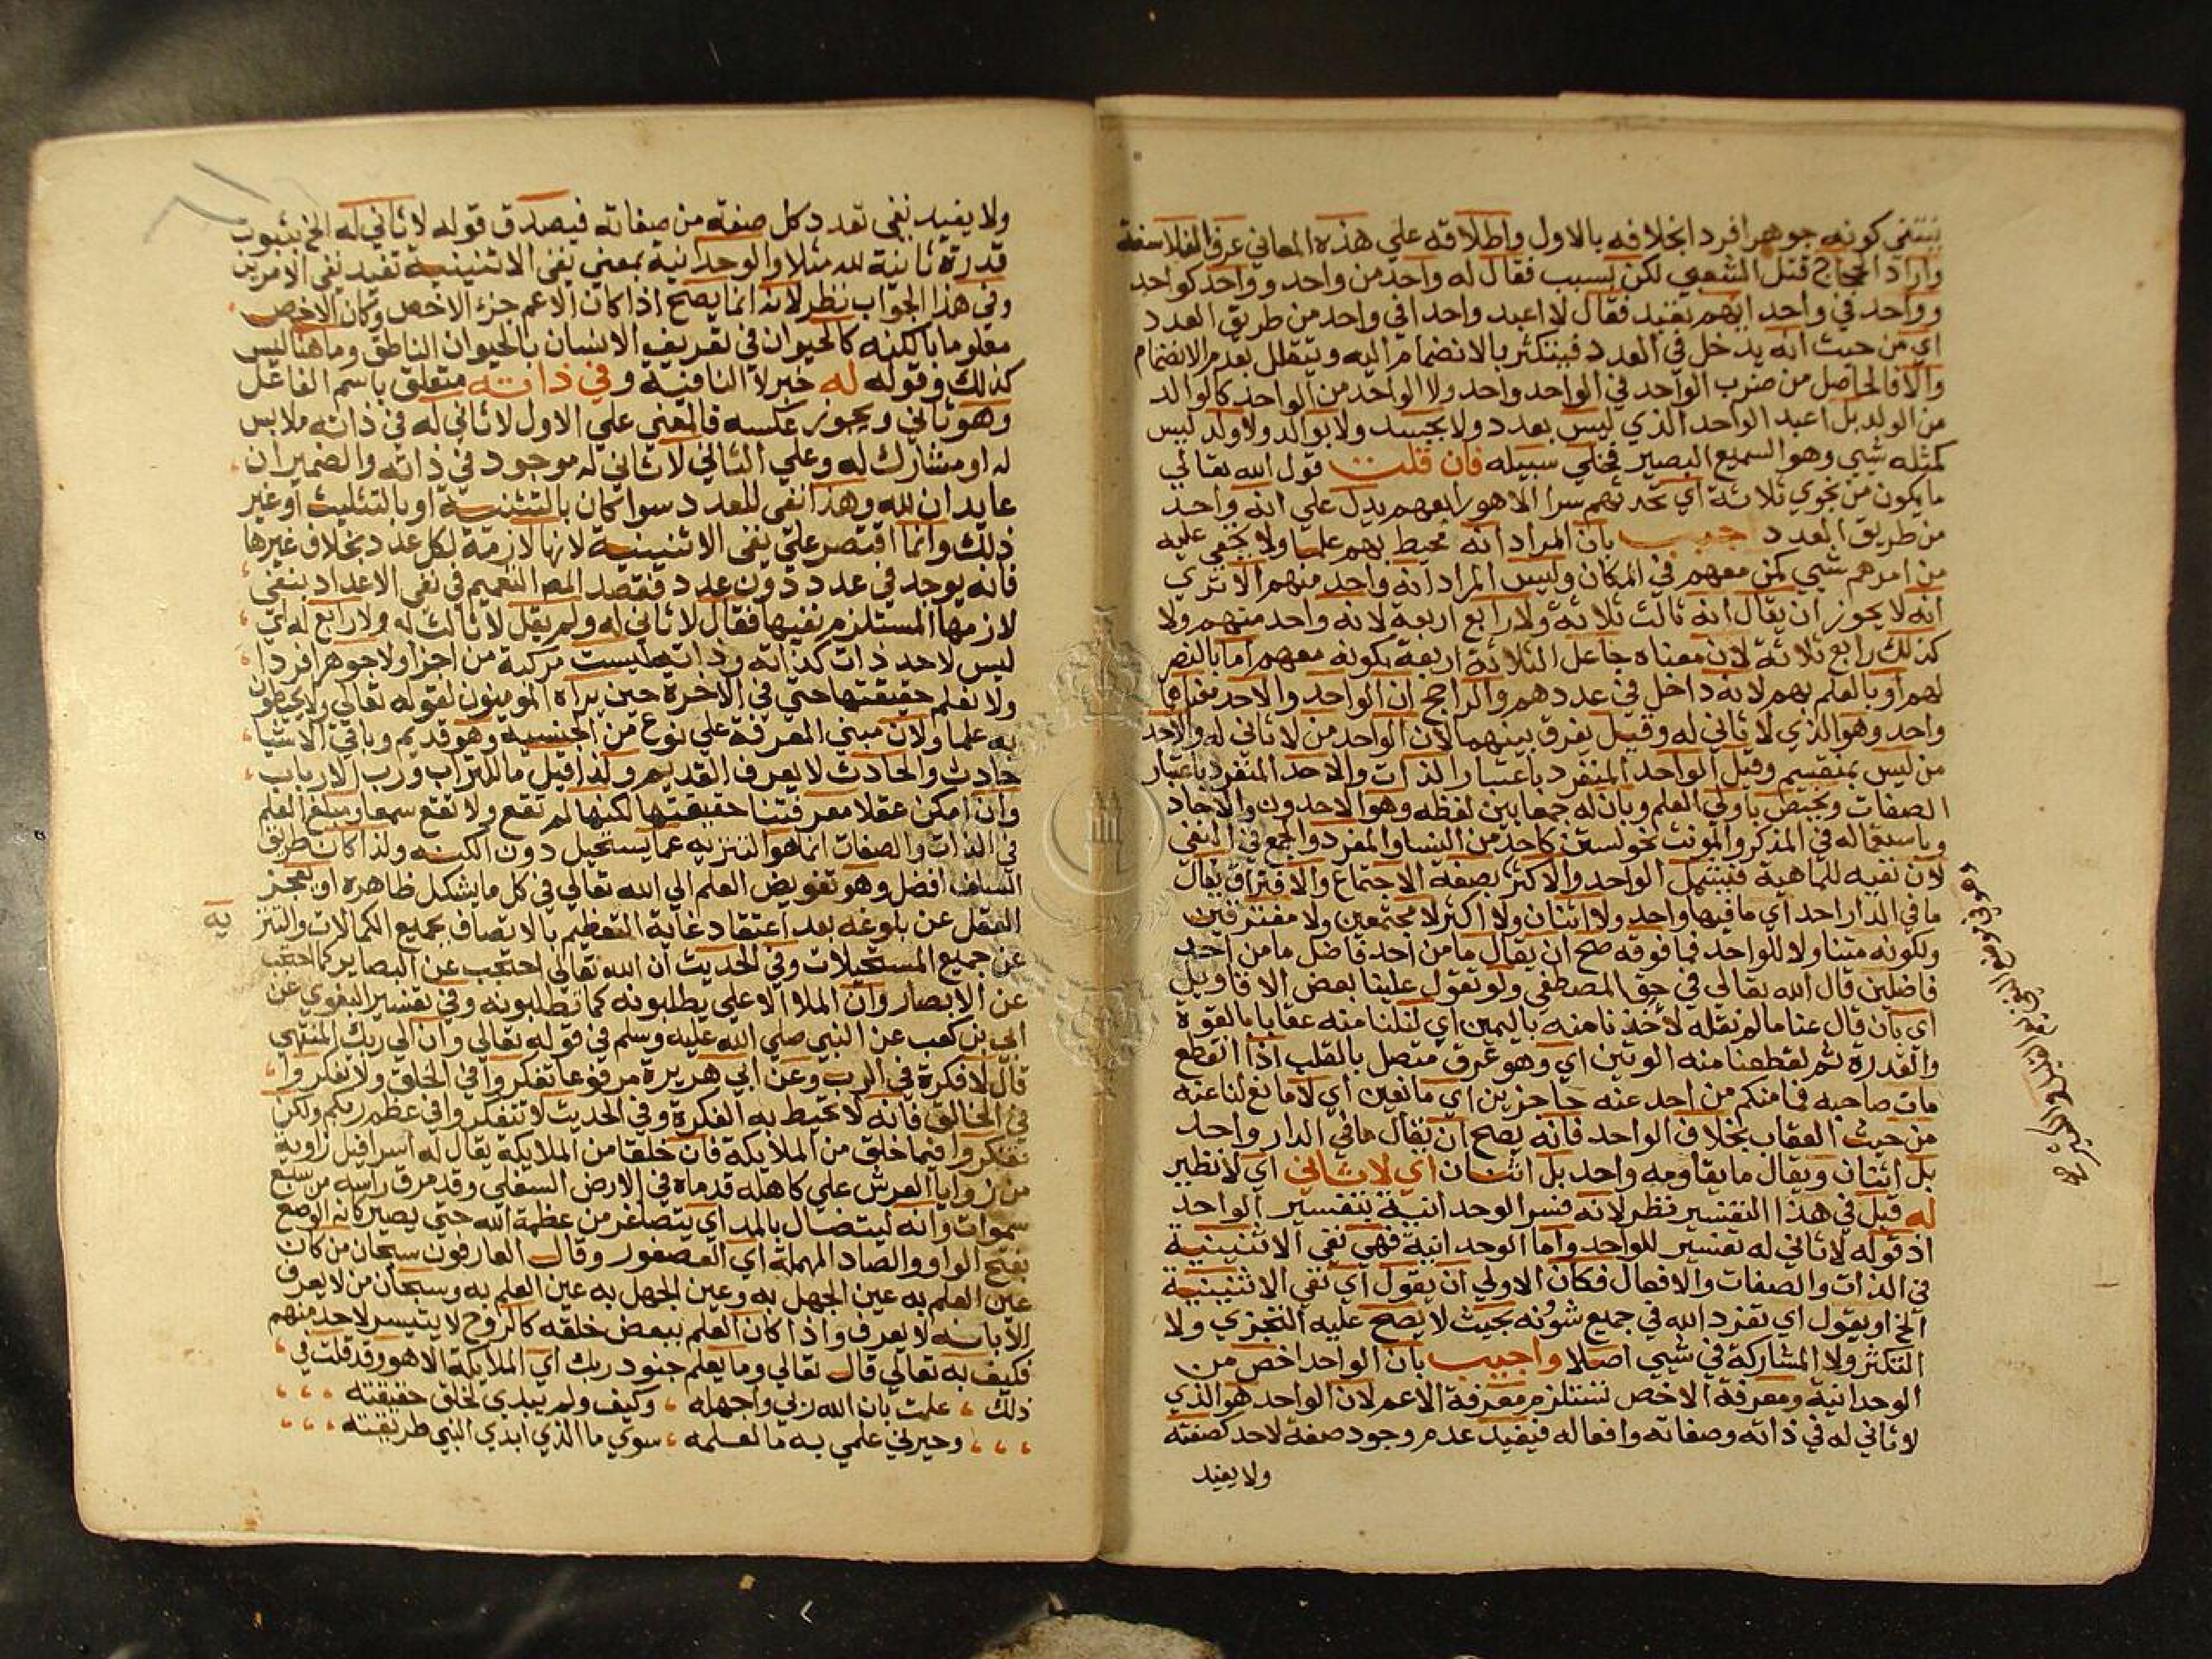 ينتفي كونه جوهرا فردا بخلافه بالاول واطلاقه علي هذه المعاني عرف الفلاسفة
واراد الحجاج قتل الشعبي لكن بسبب فقال له واحد من واحد وواحد كواحد
وواحد في واحد ايهم تعبد فقال لا اعبد واحدا في واحد من طريق العدد
اي من حيث انه يدخل في العدد فيتكثر بالانضمام اليه ويتقلل بعدم الانضمام
والا فالحاصل من ضرب الواحد في الواحد واحد ولا الواحد من الواحد كالوالد
من الولد بل اعبد الواحد الذي ليس بعدد ولا بجسد ولا بوالد ولا ولد ليس
كمثله شي وهو السميع البصير فخلي سبيله فان قلت قول الله تعالي
ما يكون من نجوي ثلاثة اي تحدثهم سرا الا هو رابعهم يدل علي انه واحد
من طريق العدد اجيب بان المراد انه محيط بهم علما ولا يخفي عليه
من امرهم شي كمن معهم في المكان وليس المراد انه واحد منهم الا تري
انه لا يجوز ان يقال انه ثالث ثلاثة ولا رابع اربعة لانه واحد منهم ولا
كذلك رابع ثلاثة لان معناه جاعل الثلاثة اربعة بكونه معهم اما بالنصر
لهم او بالعلم بهم لانه داخل في عددهم والراجح ان الواحد والاحد معناها
واحد وهو الذي لا ثاني له وقيل يفرق بينهما لان الواحد من لا ثاني له والاحد
من ليس بمنقسم وقيل الواحد المنفرد باعتبار الذات والاحد المنفرد باعتبار
الصفات ويختص باولي العلم وبان له جمعا بين لفظه وهو الاحدون والاحاد
وباستعماله في المذكر والمونث نحو لستن كاحد من النسا والمفرد والجمع في النفي
لان نفيه للماهية فيشمل الواحد والاكثر بصفة الاجتماع والافتراق يقال
ما في الدار احد اي ما فيها واحد ولا اثنان ولا اكثر لا مجتمعين ولا مفترقين
ولكونه متناولا للواحد فما فوقه صح ان يقال ما من احد فاضل ما من احد
فاضلين قال الله تعالي في حق المصطفي ولو تقول علينا بعض الاقاويل
اي بان قال عنا ما لم نقله لاخذنا منه باليمين اي لنلنا منه عقابا بالقوة
والقدرة ثم لقطعنا منه الوتين اي وهو عرق متصل بالقلب اذا انقطع
مات صاحبه فما منكم من احد عنه حاجزين اي مانعين اي لا مانع لنا عنه
من حيث العقاب بخلاف الواحد فانه يصح ان يقال ما في الدار واحد
بل اثنان ويقال ما يقاومه واحد بل اثنان اي لا ثاني اي لا نظير
له قيل في هذا التفسير نظر لانه فسر الوحدانية بتفسير الواحد
اذ قوله لا ثاني له تفسير للواحد واما الوحدانية فهي نفي الاثنينية
في الذات والصفات والافعال فكان الاولي ان يقول اي نفي الاثنينية
الخ او يقول اي تفرد الله في جميع شونه بحيث لا يصح عليه التجزي ولا
التكثر ولا المشاركة في شي اصلا واجيب بان الواحد اخص من
الوحدانية ومعرفة الاخص تستلزم معرفة الاعم لان الواحد هو الذي
لا ثاني له في ذاته وصفاته وافعاله فيفيد عدم وجود صفة لاحد كصفته
ولا يفيد
ولا يفيد نفي تعدد كل صفة من صفاته فيصدق قوله لا ثاني له الخ بثبوت
قدرة ثانية لله مثلا والوحدانية بمعني نفي الاثنينية تفيد نفي الامرين
وفي هذا الجواب نظر لانه انما يصح اذا كان الاعم جزء الاخص وكان الاخص
معلوما بالكنه كالحيوان في تعريف الانسان بالحيوان الناطق وما هنا ليس
كذلك وقوله له خبر لا النافية وفي ذاته متعلق باسم الفاعل
وهو ثاني ويجوز عكسه فالمعني علي الاول لا ثاني له في ذاته ملابس
له او مشارك له وعلي الثاني لا ثاني له موجود في ذاته والضميران
عايدان لله وهذا نفي للعدد سوا كان بالتثنية او بالتثليث او غير
ذلك وانما اقتصر علي نفي الاثنينية لانها لازمة لكل عدد بخلاف غيرها
فانه يوجد في عدد دون عدد فقصد المص التعميم في نفي الاعداد بنفي
لازمها المستلزم نفيها فقال لا ثاني له ولم يقل لا ثالث له ولا رابع له اي
ليس لاحد ذات كذاته وذاته ليست مركبة من اجزا ولا جوهرا فردا
ولا نعلم حقيقتها حتي في الاخرة حين يراه المومنون لقوله تعالي ولا يحيطون
به علما ولان مبني المعرفة علي نوع من الجنسية وهو قديم وباقي الاشيا
حادث والحادث لا يعرف القديم ولذا قيل ما للتراب ورب الارباب
وان امكن عقلا معرفتنا حقيقتها لكنها لم تقع ولا تقع سمعا ومبلغ العلم
في الذات والصفات انما هو التنزيه عما يستحيل دون الكنه ولذا كان طريق
السلف افضل وهو تفويض العلم الي الله تعالي في كل ما يشكل ظاهره او يعجز
العقل عن بلوغه بعد اعتقاد غاية التعظيم بالاتصاف بجميع الكمالات والتنز
يه
عن جميع المستحيلات وفي الحديث ان الله تعالي احتجب عن البصاير كما احتجب
عن الابصار وان الملا الاعلي يطلبونه كما تطلبونه وفي تفسير البغوي عن
ابي بن كعب عن النبي صلي الله عليه وسلم في قوله تعالي وان الي ربك المنتهي
قال لا فكرة في الرب وعن ابي هريرة مرفوعا تفكروا في الخلق ولا تفكروا
في الخالق فانه لا تحيط به الفكرة وفي الحديث لا تتفكروا في عظم ربكم ولكن
تفكروا فيما خلق من الملايكة فان خلقا من الملايكة يقال له اسرافيل زاوية
من زوايا العرش علي كاهله قدماه في الارض السفلي وقد مرق راسه من سبع
سموات وانه ليتضال بالمد اي يتصاغر من عظمة الله حتي يصير كانه الوصع
بفتح الواو والصاد المهملة اي العصفور وقال العارفون سبحان من كان
عين العلم به عين الجهل به وعين الجهل به عين العلم به وسبحان من لا يعرف
الا بانه لا يعرف واذا كان العلم ببعض خلقه كالروح لا يتيسر لاحد منهم
فكيف به تعالي قال تعالي وما يعلم جنود ربك اي الملايكة الا هو وقد قلت في
ذلك علمت بان الله ربي واجهله وكيف ولم يبدي لخلق حقيقته
وحيرني علمي به ما لعلمه سوي ما الذي ابدي النبي طريقته